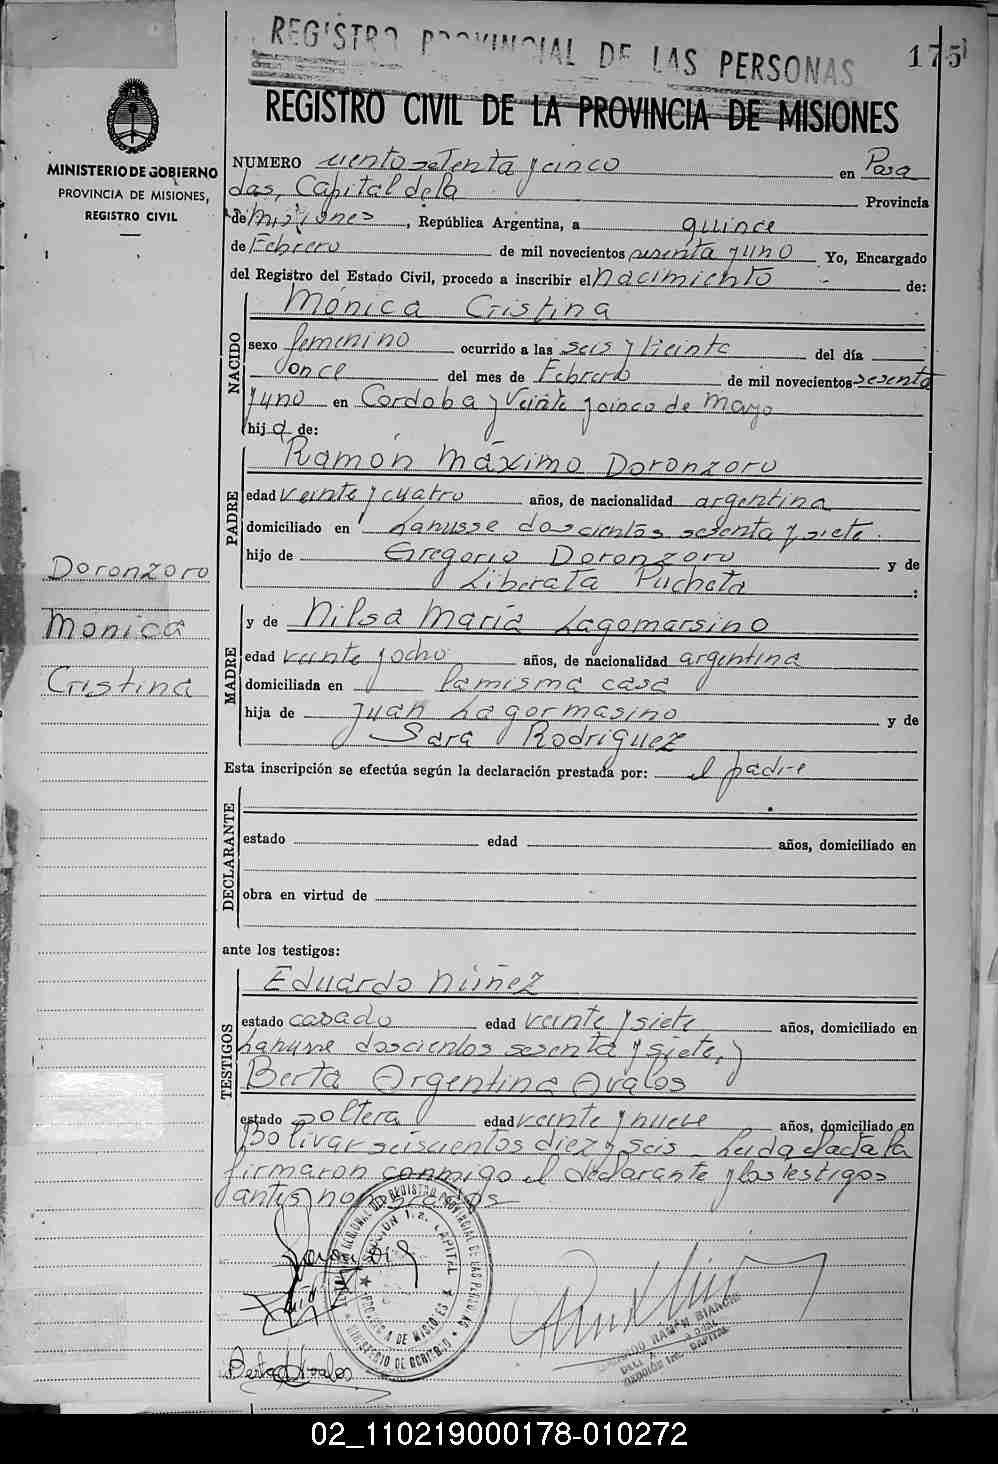 REGISTRO PROVINCIAL DE LAS PERSONAS
175
REGISTRO CIVIL DE LA PROVINCIA DE MISIONES
MINISTERIO DE GOBIERNO
PROVINCIA DE MISIONES,
REGISTRO CIVIL
NUMERO ciento setenta y cinco en Posa
das, Capital de la Provincia
de Misiones, República Argentina, a quince
de Febrero de mil novecientos sesenta y uno Yo, Encargado
del Registro del Estado Civil, procedo a inscribir el nacimiento de:
NACIDO
Mónica Cristina
sexo femenino ocurrido a las seis y veinte del día
once del mes de Febrero de mil novecientos sesenta
y uno en Cordoba y Veinte y cinco de Mayo
hija de:
PADRE
Ramón Máximo Doronzoro
edad veinte y cuatro años, de nacionalidad argentina
domiciliado en Lanusse doscientos sesenta y siete
hijo de Gregorio Doronzoro y de
Liberata Pucheta :
Doronzoro
Monica
Cristina
MADRE
y de Nilsa María Lagomarsino
edad veinte y ocho años, de nacionalidad argentina
domiciliada en la misma casa
hija de Juan Lagormasino y de
Sara Rodriguez
Esta inscripción se efectúa según la declaración prestada por: el padre
DECLARANTE
estado edad años, domiciliado en
obra en virtud de
ante los testigos:
TESTIGOS
Eduardo Núñez
estado casado edad veinte y siete años, domiciliado en
Lanusse doscientos sesenta y siete, y
Berta Argentina Avalos
estado soltera edad veinte y nueve años, domiciliado en
Bolivar seiscientos diez y seis. Leida el acta la
firmaron conmigo el declarante y los testigos
antes nombrados
SECCION 1a. CAPITAL
PROVINCIA DE MISIONES
MINISTERIO DE GOBIERNO
RAMÓN BIANCHI
Berta Avalos
02_110219000178-010272